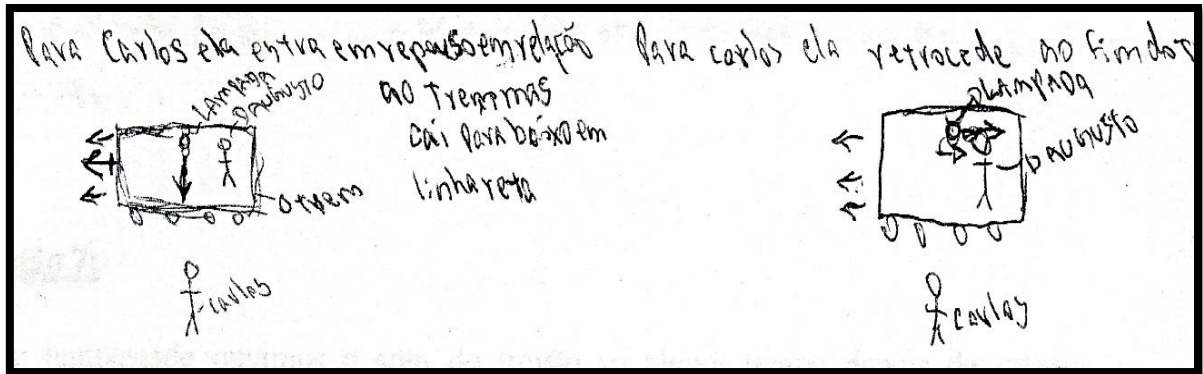 Para Carlos ela entra em repouso em relação
ao trem mas
cai para baixo em
linha reta
LAMPADA
AUGUSTO
O trem
Carlos
Para carlos ela retrocede ao fim do
LAMPADA
AUGUSTO
Carlos